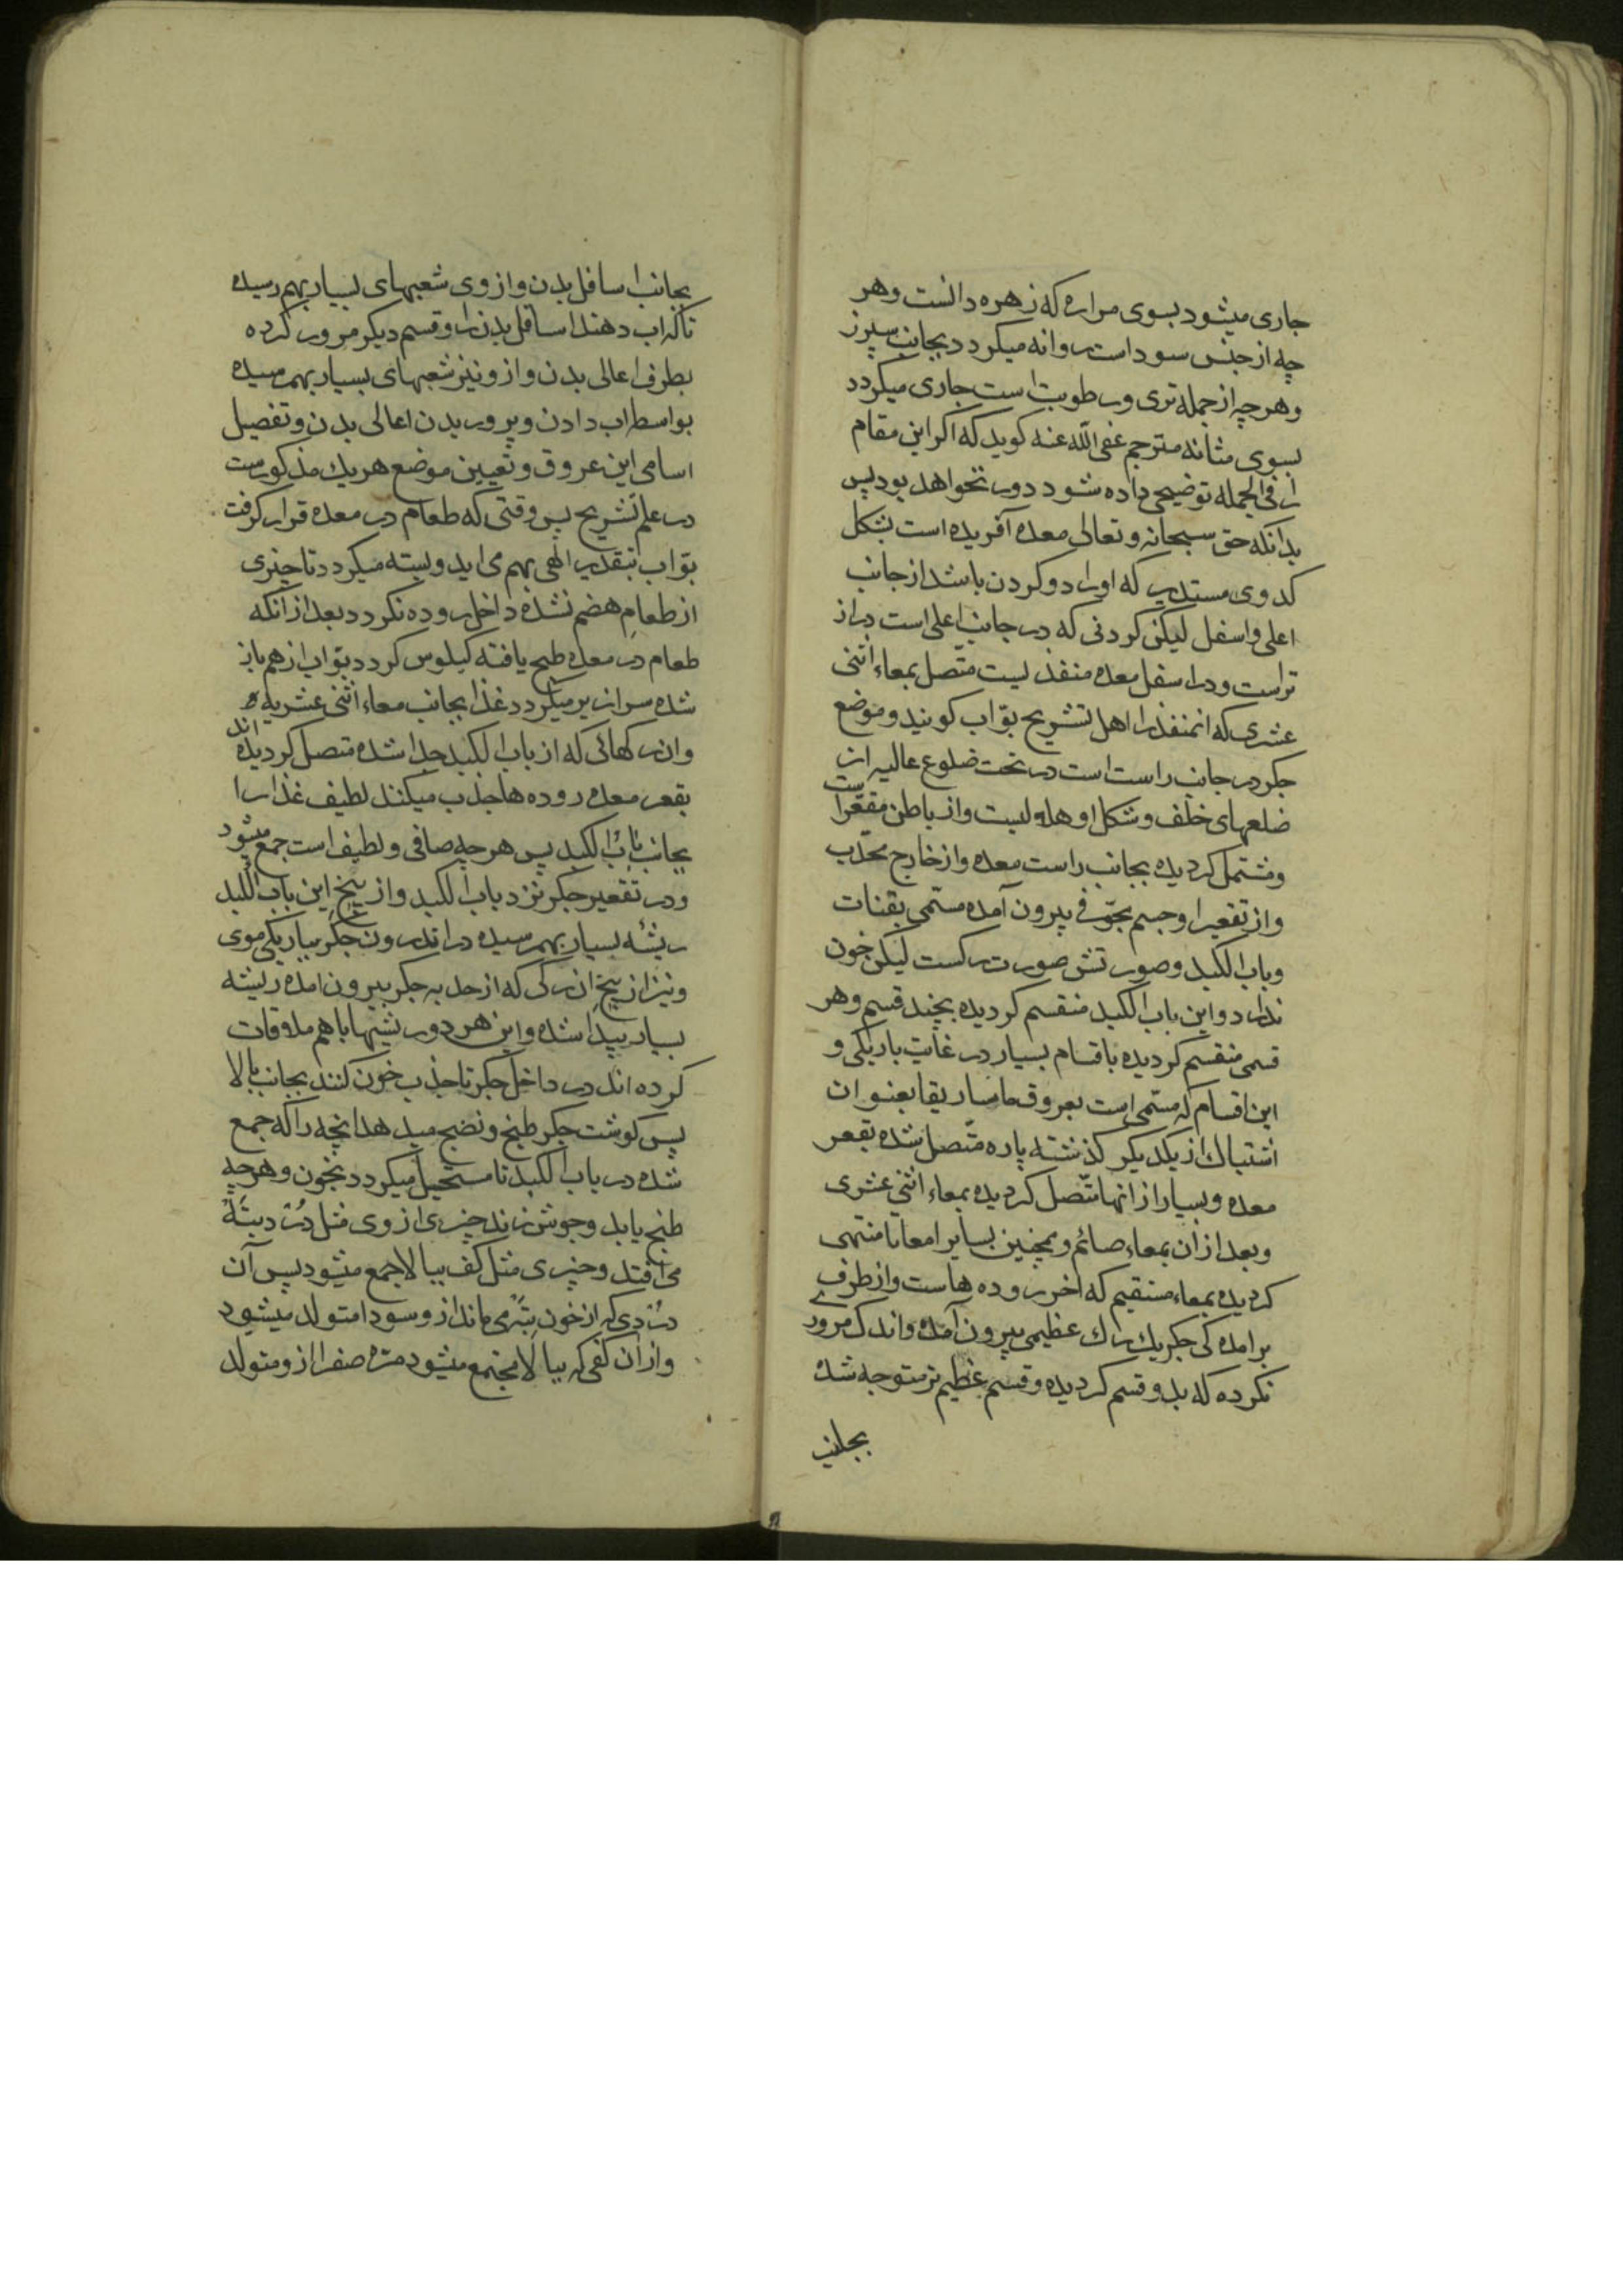 جاری میشود بسوی مراره که زهره دانست وهر
چه از جنس سوداست روانه میکردد بجانب سپرز
وهرچه از جمله تری ورطوبت است جاری میکردد
بسوی مثانه مترجم عفی الله عنه کوید که اکر این مقام
را فی الجمله توضیحی داده شود دور نخواهد بود پس
بدانکه حق سبحانه وتعالی معده آفریده است بشکل
کدوی مستدیر که اورا دو کردن باشد از جانب
اعلی واسفل لیکن کردنی که در جانب اعلی است دراز
تراست ودر اسفل معده منفذیست متّصل بمعاء اثنی
عشری که انمنفذ را اهل تشریح بوّاب کویند وموضع
جکر در جانب راست است در تحت ضلوع عالیه از
ضلعهای خلف وشکل او هلالیست واز باطن مقعّر است
ومشتمل کردیده بجانب راست معده واز خارج محدّب
واز تقعیر او جسم مجوّفی بیرون آمده مسمّی بقنات
وباب الکبد وصورتش صورت رکست لیکن خون
ندارد واین باب الکبد منقسم کردیده بچند قسم وهر
قسمی منقسم کردیده باقسام بسیار در غایت باریکی و
این اقسام که مسمّی است بعروق ماساریقا بعنوان
اشتباك از یکدیکر کذشته پاره متّصل شده بقعر
معده وبسیار از انها متّصل کردیده بمعاء اثنی عشری
وبعد از ان بمعاء صائم وهمچنین بسایر امعا تا منتهی
کردیده بمعاء مستقیم که اخر روده هاست واز طرف
برامده کی جکر یك رك عظیمی بیرون آمده واندك مرور
نکرده که بدو قسم کردیده وقسم عظیم تر متوجه شده
بجانب
بجانب اسافل بدن واز وی شعبهای بسیار بهم رسیده
تا که اب دهند اسافل بدن را وقسم دیکر مرور کرده
بطرف اعالی بدن واز و نیز شعبهای بسیار بهم رسیده
بواسطه اب دادن وپروریدن اعالی بدن وتفصیل
اسامی این عروق وتعیین موضع هر یك مذکورست
در علم تشریح پس وقتی که طعام در معده قرار کرفت
بوّاب بتقدیر الهی بهم می اید وبسته میکردد تا چیزی
از طعام هضم نشده داخل روده نکردد بعد از انکه
طعام در معده طبخ یافته کیلوس کردد بوّاب از هم باز
شده سرازیر میکردد غذا بجانب معاء اثنی عشریه
وان رکهائی که از باب الکبد جدا شده متصل کردیده اند
بقعر معده وروده ها جذب میکنند لطیف غذا را
بجانب باب الکبد پس هرچه صافی ولطیف است جمع میشود
ودر تقعیر جکر نزد باب الکبد واز بیخ این باب الکبد
ریشه بسیار بهم رسیده در اندرون جکر بباریکی موی
ونیز از بیخ ان رکی که از حدبه جکر بیرون امده ریشه
بسیار پیدا شده واین هر دو ریشیها با هم ملاقات
کرده اند در داخل جکر تا جذب خون کنند بجانب بالا
پس کوشت جکر طبخ ونضج میدهد انچه را که جمع
شده در باب الکبد تا مستحیل میکردد بخون وهرچه
طبخ یابد وجوش زند چیزی از وی مثل درد بته
می افتد وچیزی مثل کف ببالا جمع میشود پس آن
دردی که از خون بته می ماند از و سودا متولد میشود
واز ان کفی که ببالا مجتمع میشود مره صفرا از و متولد